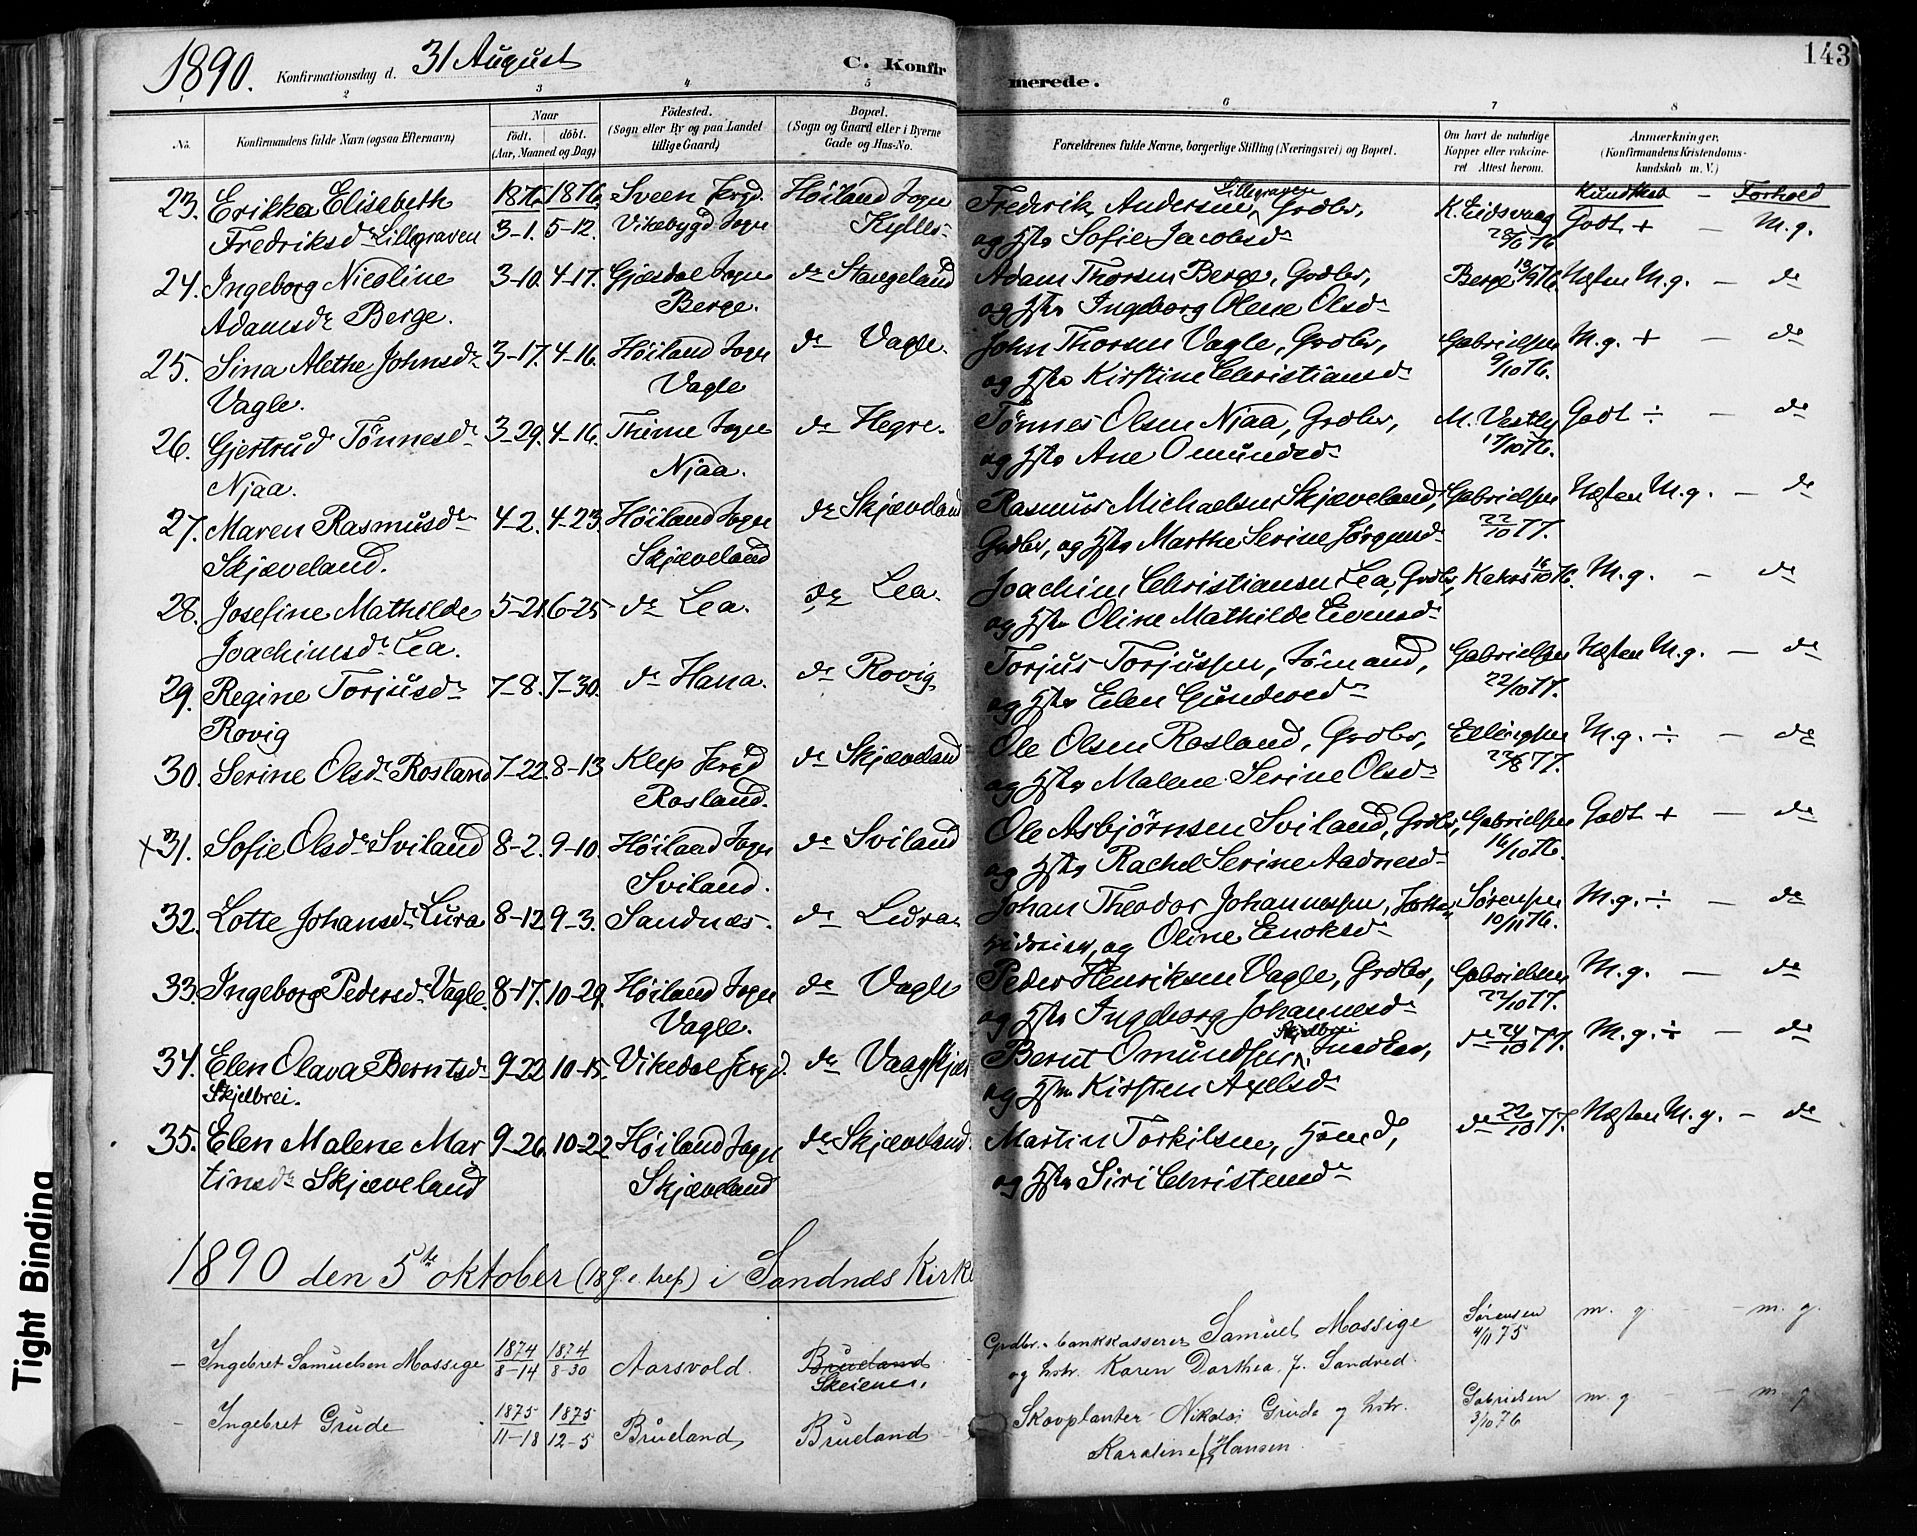 1890. Konfirmationsdag d. 31 August C. Konfirmerede. 143
2 3 4 5 6 7 8
No. Konfirmandens fulde Navn (ogsaa Efternavn) Naar født, døbt. (Aar, Maaned og Dag) Fødested. (Sogn eller By og paa Landet tillige Gaard) Bopæl. (Sogn og Gaard eller i Byerne Gade og Hus-No. Forældrenes fulde Navne, borgerlige Stilling (Næringsvei) og Bopæl. Om havt de naturlige Kopper eller vakcineret Attest herom. Anmærkninger, (Konfirmandens Kristendomskundskab m. V.)
Kundskab – Forhold
23. Erikka Elisebeth 1876 1876 Sveen Prgd. Høiland Sogn Frederik Andersen Lillegraven, Grdbr, K. Eidsvaag Godt + – M.g.
Fredriksdr Lillegraven 3-1. 5-12. Vikebygd Sogn Kylles- og Hstr Sofie Jacobsdr
24. Ingeborg Nicoline 3-10. 4-17. Gjesdal Sogn do Stangeland Adam Thorsen Berge, Grdbr, Berge 13/9 76. Næsten M.g. – do
Adamsdr Berge. Berge. og Hstr Ingeborg Olene Olsdr
25. Sina Alethe Johnsdr 3-17. 4-16. Høiland Sogn do Vagle. John Thorsen Vagle, Grdbr, Gabrielsen M.g. + – do
Vagle. Vagle og Hstr Kirstine Christiansdr 9/10 76.
26. Gjertrud Tönnesdr 3-29. 4-16. Thime Sogn do Hegre. Tönnes Olsen Njaa, Grdbr, M. Vestly Godt ÷ – do
Njaa. Njaa. og Hstr Ane Omundsdr
27. Maren Rasmusdr 4-2. 4-23. Høiland Sogn do Skjæveland Rasmus Michaelsen Skjæveland, Gabrielsen Næsten M.g. – do
Skjæveland. Skjæveland Grdbr, og Hstr Marthe Serine Jørgensd. 22/10 77.
28. Josefine Mathilde 5-21. 6-25 do Lea. do Lea. Joachim Christiansen Lea, Grdbr, M.g. – do
Joachimsdr Lea. og Hstr Oline Mathilde Evensdr
29. Regine Torjusdr 7-8. 7-30. do Hana. do Rovig. Torjus Torjussen, Sömand, Gabrielsen Næsten M.g. – do
Rovig og Hstr Elen Gundersdr 22/10 77.
30. Serine Olsdr Rosland 7-22 8-13 Klep Prgd do Skjæveland Ole Olsen Rosland, Grdbr, Ellingsen M.g. ÷ – do
Rosland. og Hstr Malene Serine Olsdr 22/8 77.
x 31. Sofie Olsdr Sviland 8-2. 9-10. Høiland Sogn do Sviland Ole Asbjørnsen Sviland, Grdbr, Gabrielsen Godt + – do
Sviland. og Hstr Rachel Serine Aadnesdr 16/10 76.
32. Lotte Johansdr Lura 8-12 9-3. Sandnæs. do Johan Theodor Johannessen, Sørensen M.g. ÷ – do
og Oline Enoksdr 10/11 76.
33. Ingeborg Pedersdr Vagle. 8-17. 10-29. Høiland Sogn do Vagle Peder Henriksen Vagle, Grdbr, Gabrielsen M.g. – do
Vagle. og Hstr Ingeborg Johannesdr 22/10 77.
34. Elen Olava Berntsdr 9-22 10-15. Vikedal Prgd. do Vaagskjær Bernt Omundsen Skjelbrei, Snedker, do 24/10 77. M.g. ÷ – do
Skjelbrei. og Hstr Kirsten Axelsdr
35. Elen Malene Mar 9-26. 10-22. Høiland Sogn do Skjæveland. Martin Torkilsen, Hsmd, do 22/10 77. Næsten M.g. – do
tinsdr Skjæveland Skjæveland og Hstr Siri Christensdr
1890 den 5te oktober (18 s. e. tref) i Sandnæs Kirke
– Ingebret Samuelsen Mossige 1874 8-14 1874 8-30 Aarsvold. Brueland Skeiene. Grdbr. bankkasserer Samuel Mossige Sørensen 4/11 75 m. g. – m. g.
og hstr. Karen Dorthea f. Sandved.
– Ingebret Grude 1875 11-18 1875 12-5 Brueland Brueland Skovplanter Nikolai Grude og hstr. Gabrielsen 3/10 76 m. g – m. g
Karoline f. Hansen.
Tight Binding